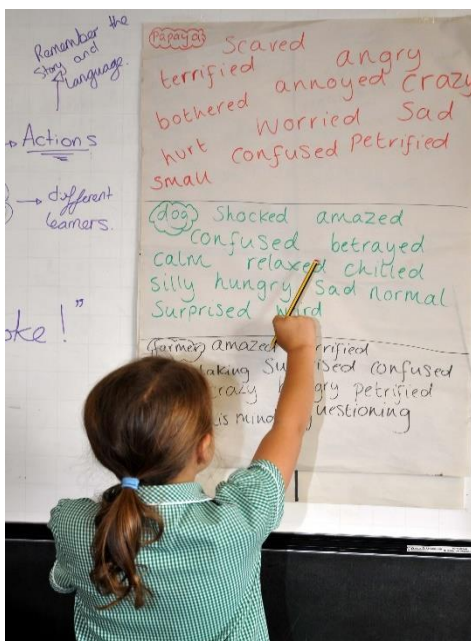 Remember the
story and
language.
Actions
different
learners.
oke!"
Papaya
Scared angry
terrified annoyed crazy
bothered worried Sad
hurt confused Petrified
small
dog Shocked amazed
confused betrayed
calm relaxed chilled
silly hungry Sad normal
Surprised
farmer amazed
confused
petrified
is mind questioning